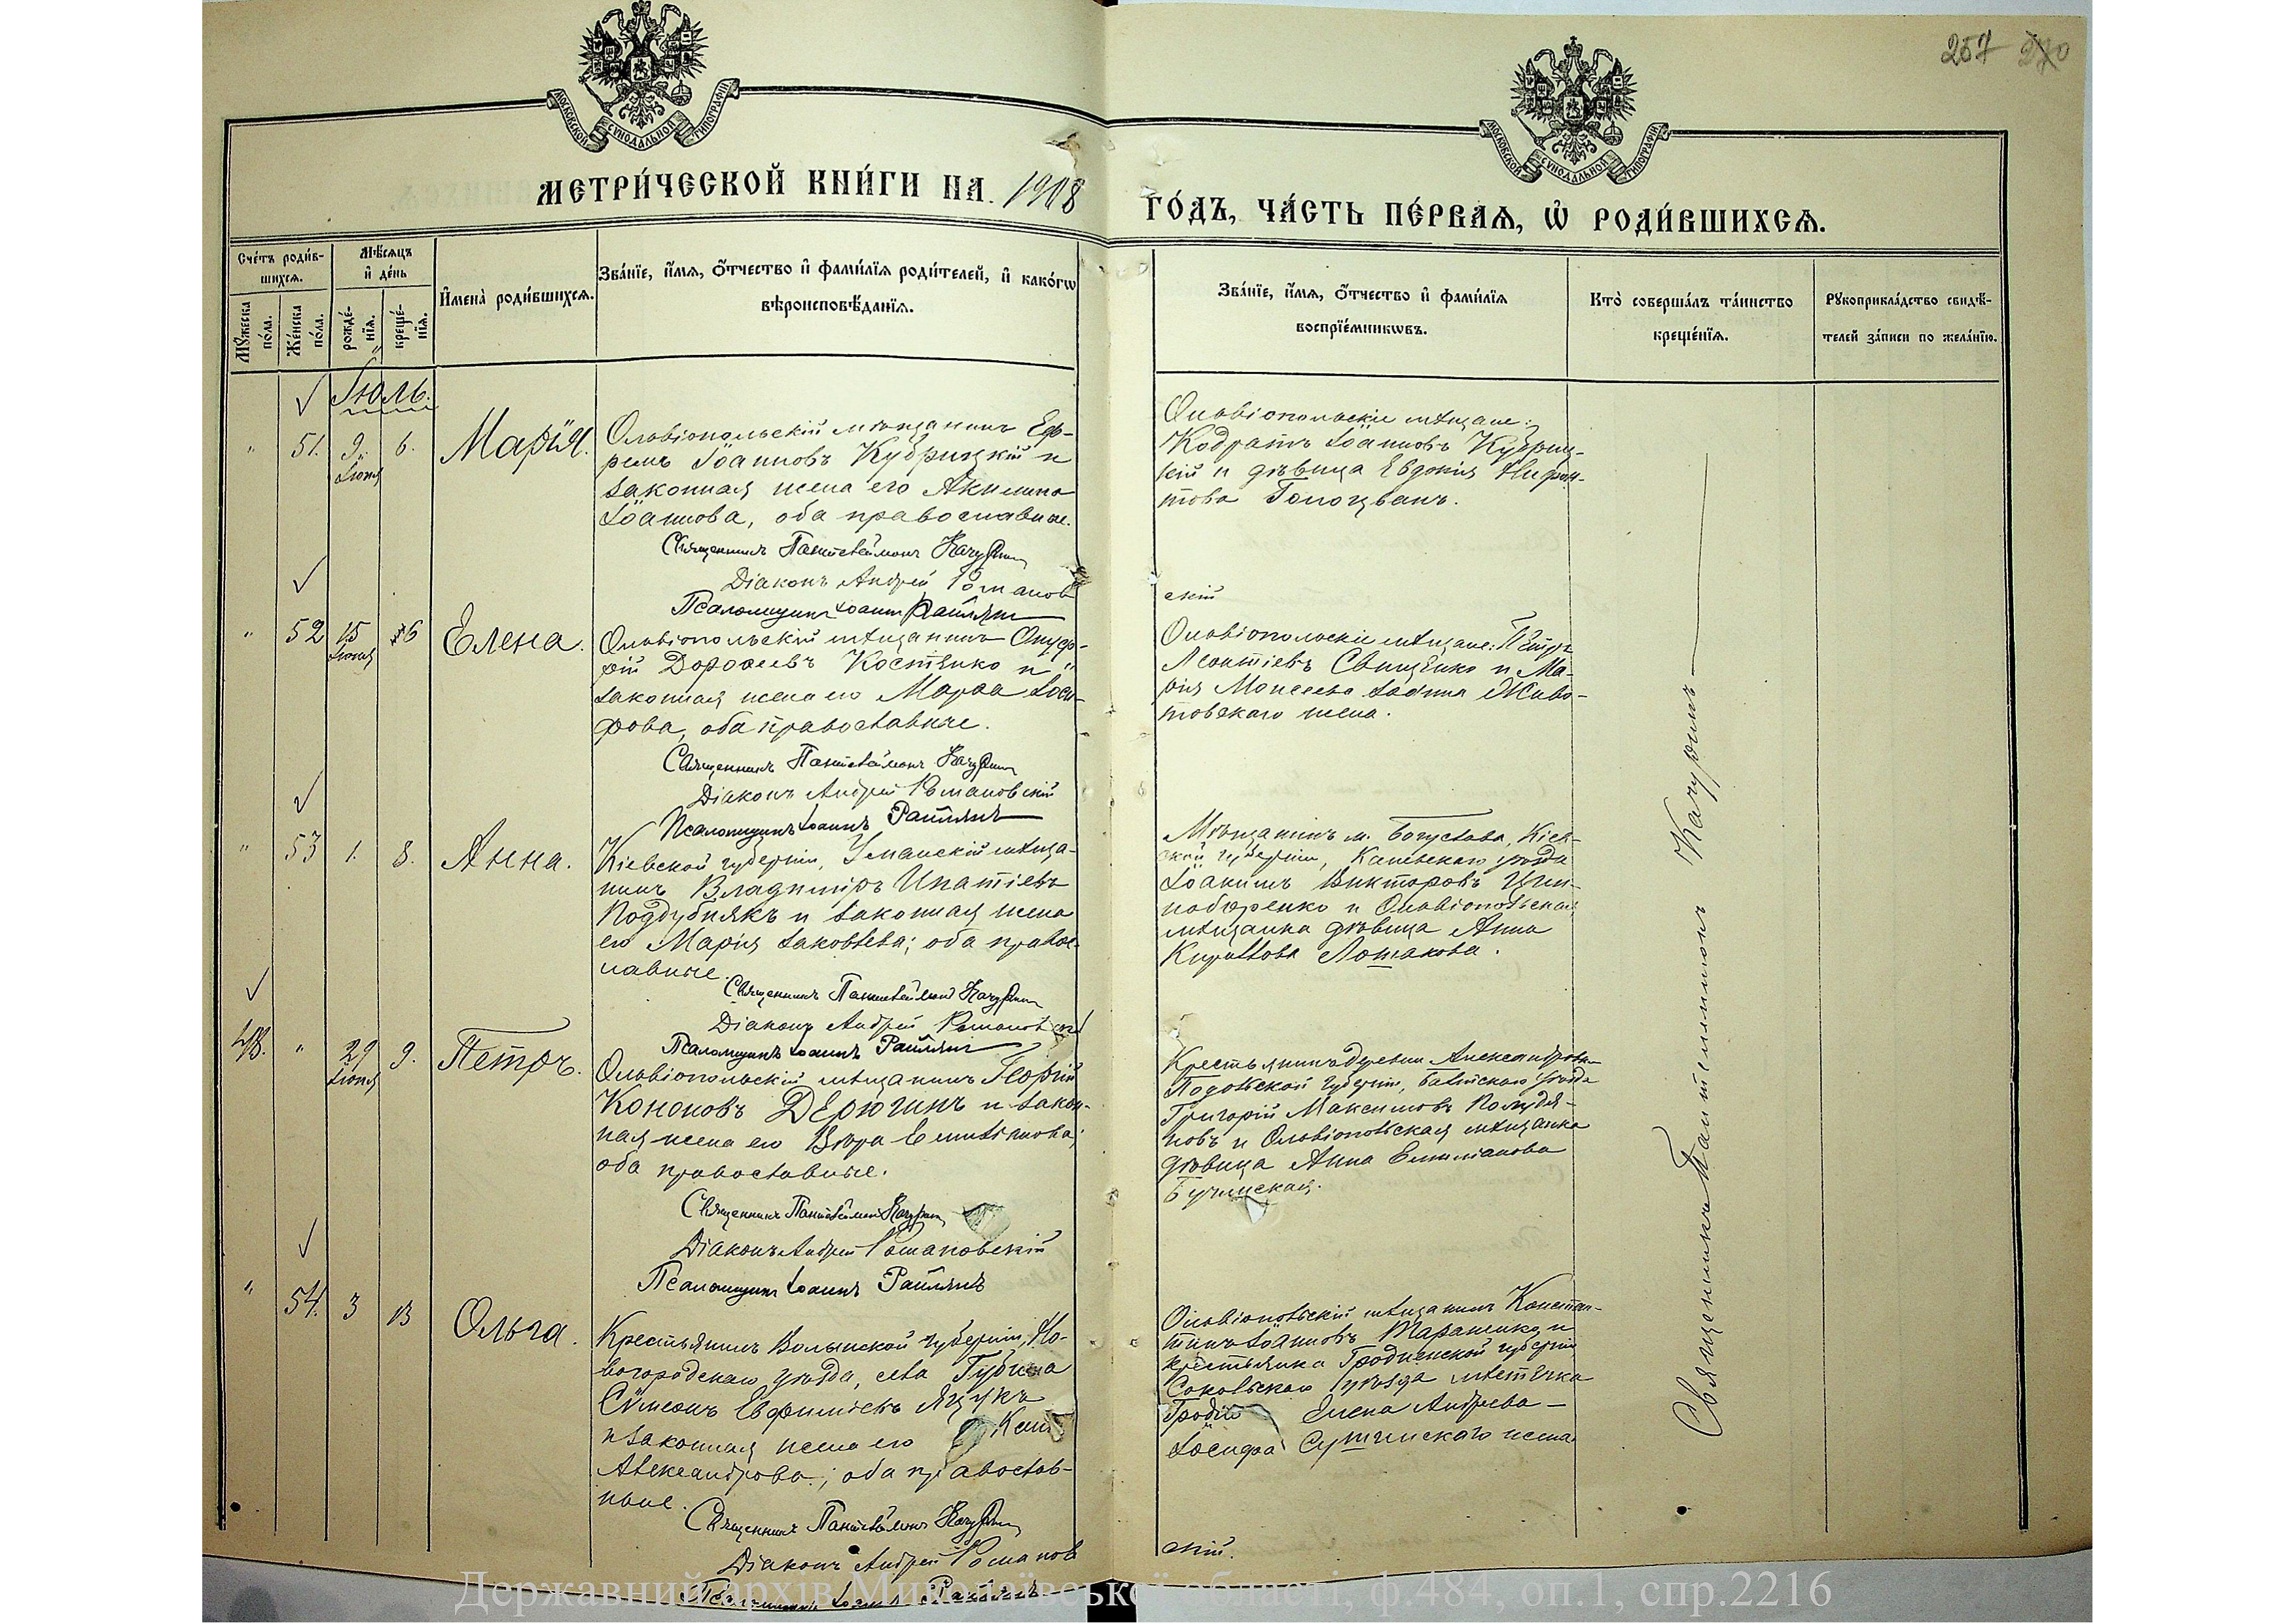 257 270
МОСКОВСКОЙ СУНОДАЛЬНОЙ ТИПОГРАФІИ
МОСКОВСКОЙ СУНОДАЛЬНОЙ ТИПОГРАФІИ
МЕТРИ́ЧЕСКОЙ КНИ́ГИ НА 1908
ГО́ДЪ, ЧА́СТЬ ПЕ́РВАѦ, Ѽ РОДИ́ВШИХСѦ.
Сче́тъ роди́в-
шихсѧ.
Мѣ́сѧцъ
и҆ де́нь
Мꙋ́жеска
по́ла.
Же́нска
по́ла.
рожде́-
нїѧ.
креще́-
нїѧ.
И҆мена̀ роди́вшихсѧ.
Зва́нїе, и҆́мѧ, ѻ҆́тчество и҆ фами́лїѧ роди́телей, и҆ како́гѡ
вѣроисповѣ́данїѧ.
Зва́нїе, и҆́мѧ, ѻ҆́тчество и҆ фами́лїѧ
воспрїе́мникѡвъ.
Кто̀ соверша́лъ та́инство
креще́нїѧ.
Рꙋкоприкла́дство свидѣ́-
телей за́писи по жела́нїю.
Іюль.
" 51. 9. Іюня 6. Марія.
Ольвіопольскій мѣщанинъ Еф-
ремъ Іоанновъ Кубрицкій и
законная жена его Акилина
Іоаннова, оба православные.
Священникъ Пантелеймонъ Качурин
Діаконъ Андрей Романов
Псаломщикъ Іоаннъ Райлянъ
Ольвіопольскіе мѣщане:
Кодратъ Іоанновъ Кубриц-
кій и дѣвица Евдокія Нифон-
това Голоцванъ.
скій
" 52 15 Іюня 6 Елена.
Ольвіопольскій мѣщанинъ Онуф-
рій Дорофеевъ Костенко и
законная жена его Марфа Іоси-
фова, оба православные.
Священникъ Пантелеймонъ Качурин
Діаконъ Андрей Романовскій
Псаломщикъ Іоаннъ Райлянъ
Ольвіопольскіе мѣщане: Петръ
Леонтіевъ Свищенко и Ма-
рія Моисеева Іоанна Живо-
товскаго жена.
" 53 1. 8. Анна.
Кіевской губерніи, Уманскій мѣща-
нинъ Владиміръ Ипатіевъ
Поддубнякъ и законная жена
его Марія Іаковлева; оба правос-
лавные.
Священникъ Пантелеймонъ Качурин
Діаконъ Андрей Романовскій
Псаломщикъ Іоаннъ Райлянъ
Мѣщанинъ м. Богуслава, Кіев-
ской губерніи, Каневскаго уѣзда
Іоакимъ Викторовъ
и Ольвіопольская
мѣщанка дѣвица Анна
Кириллова Лошакова.
48. " 29 Іюня 9. Петръ.
Ольвіопольскій мѣщанинъ Георгій
Кононовъ Дерюгинъ и закон-
ная жена его Вѣра Емиліанова;
оба православные.
Священникъ Пантелеймонъ Качурин
Діаконъ Андрей Романовскій
Псаломщикъ Іоаннъ Райлянъ
Крестьянинъ деревни Александровки
Подольской губерніи, Балтскаго уѣзда
Григорій Максимовъ
и Ольвіопольская мѣщанка
дѣвица Анна Емиліанова
" 54. 3 13 Ольга.
Крестьянинъ Волынской губерніи, Но-
вогородскаго уѣзда, села Губина
Сѵмеонъ Евфиміевъ Яцукъ
и законная жена его
Александрова; оба православ-
ные.
Священникъ Пантелеймонъ Качурин
Діаконъ Андрей Романов
Псаломщикъ Іоаннъ Райлянъ
Ольвіопольскій мѣщанинъ Констан-
тинъ Іоанновъ Тараненко и
крестьянка Гродненской губерніи
Сокольскаго уѣзда мѣстечка
Елена Андреева
Іосифа жена.
скій.
Священникъ Пантелеимонъ Качуринъ
Державний архів Миколаївської області, ф.484, оп.1, спр.2216